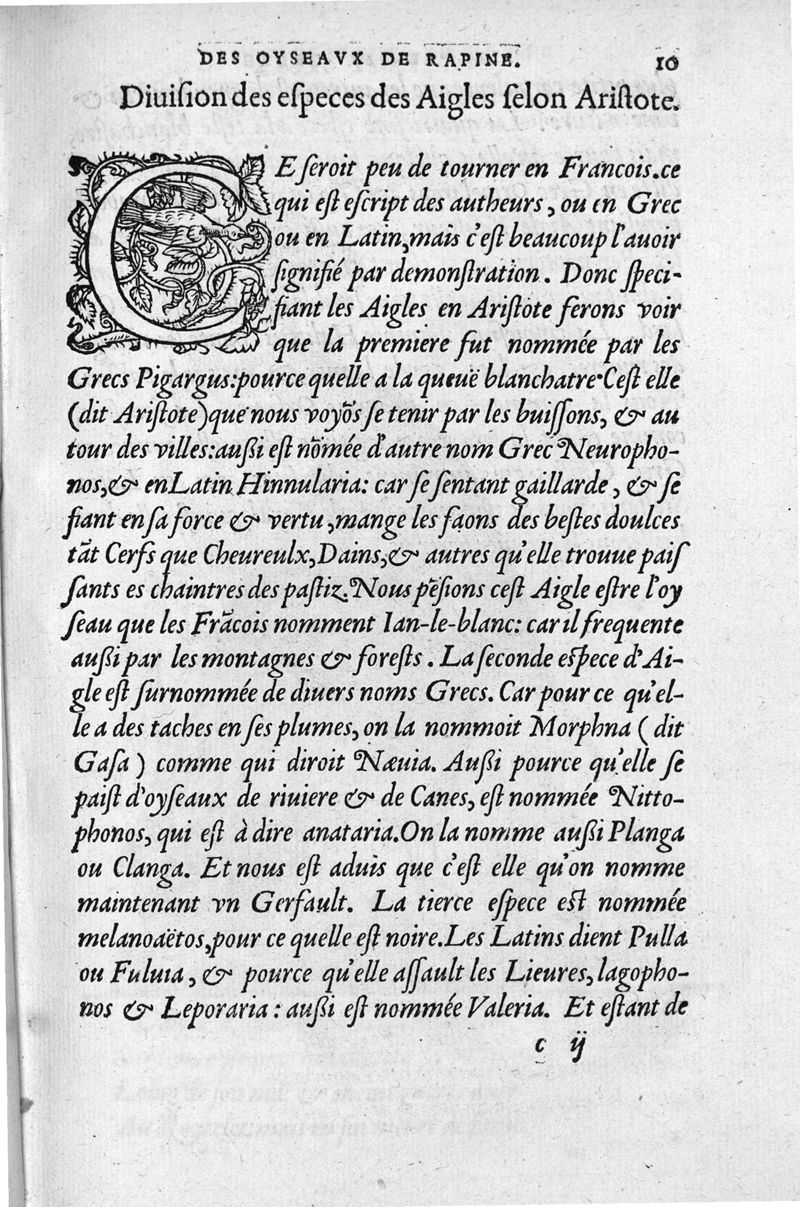 DES OYSEAVX DE RAPINE. 10
Diuiſion des eſpeces des Aigles ſelon Ariſtote.
CE ſeroit peu de tourner en Francois.ce
qui eſt eſcript des autheurs, ou en Grec
ou en Latin,mais c'eſt beaucoup l'auoir
ſignifié par demonſtration. Donc ſpeci-
fiant les Aigles en Ariſtote ferons voir
que la premiere fut nommée par les
Grecs Pigargus:pource quelle a la queuë blanchatre.Ceſt elle
(dit Ariſtote)que nous voyõs ſe tenir par les buiſſons, & au
tour des villes:außi eſt nõmée d'autre nom Grec Neuropho-
nos,& en Latin Hinnularia: car ſe ſentant gaillarde, & ſe
fiant en ſa force & vertu,mange les faons des beſtes doulces
tãt Cerfs que Cheureulx,Dains,& autres qu'elle trouue paiſ
ſants es chaintres des paſtiz.Nous pẽſions ceſt Aigle eſtre l'oy
ſeau que les Frãcois nomment Ian-le-blanc: car il frequente
außi par les montagnes & foreſts. La ſeconde eſpece d'Ai-
gle eſt ſurnommée de diuers noms Grecs. Car pour ce qu'el-
le a des taches en ſes plumes, on la nommoit Morphna (dit
Gaſa) comme qui diroit Næuia. Außi pource qu'elle ſe
paiſt d'oyſeaux de riuiere & de Canes, eſt nommée Nitto-
phonos, qui eſt à dire anataria.On la nomme außi Planga
ou Clanga. Et nous eſt aduis que c'eſt elle qu'on nomme
maintenant vn Gerfault. La tierce eſpece eſt nommée
melanoaëtos,pour ce quelle eſt noire.Les Latins dient Pulla
ou Fuluia, & pource qu'elle aſſault les Lieures, lagopho-
nos & Leporaria: außi eſt nommée Valeria. Et eſtant de
c ij